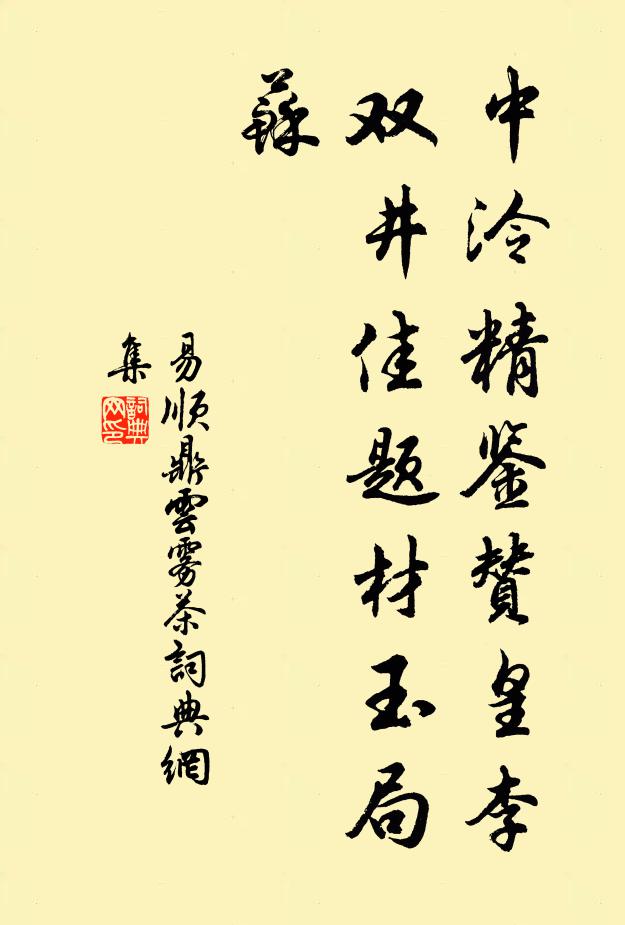 中泠精鉴赞皇李
双井佳题材玉局
蘇
易順鼎雲霧茶詞典網
集
詞典
网印